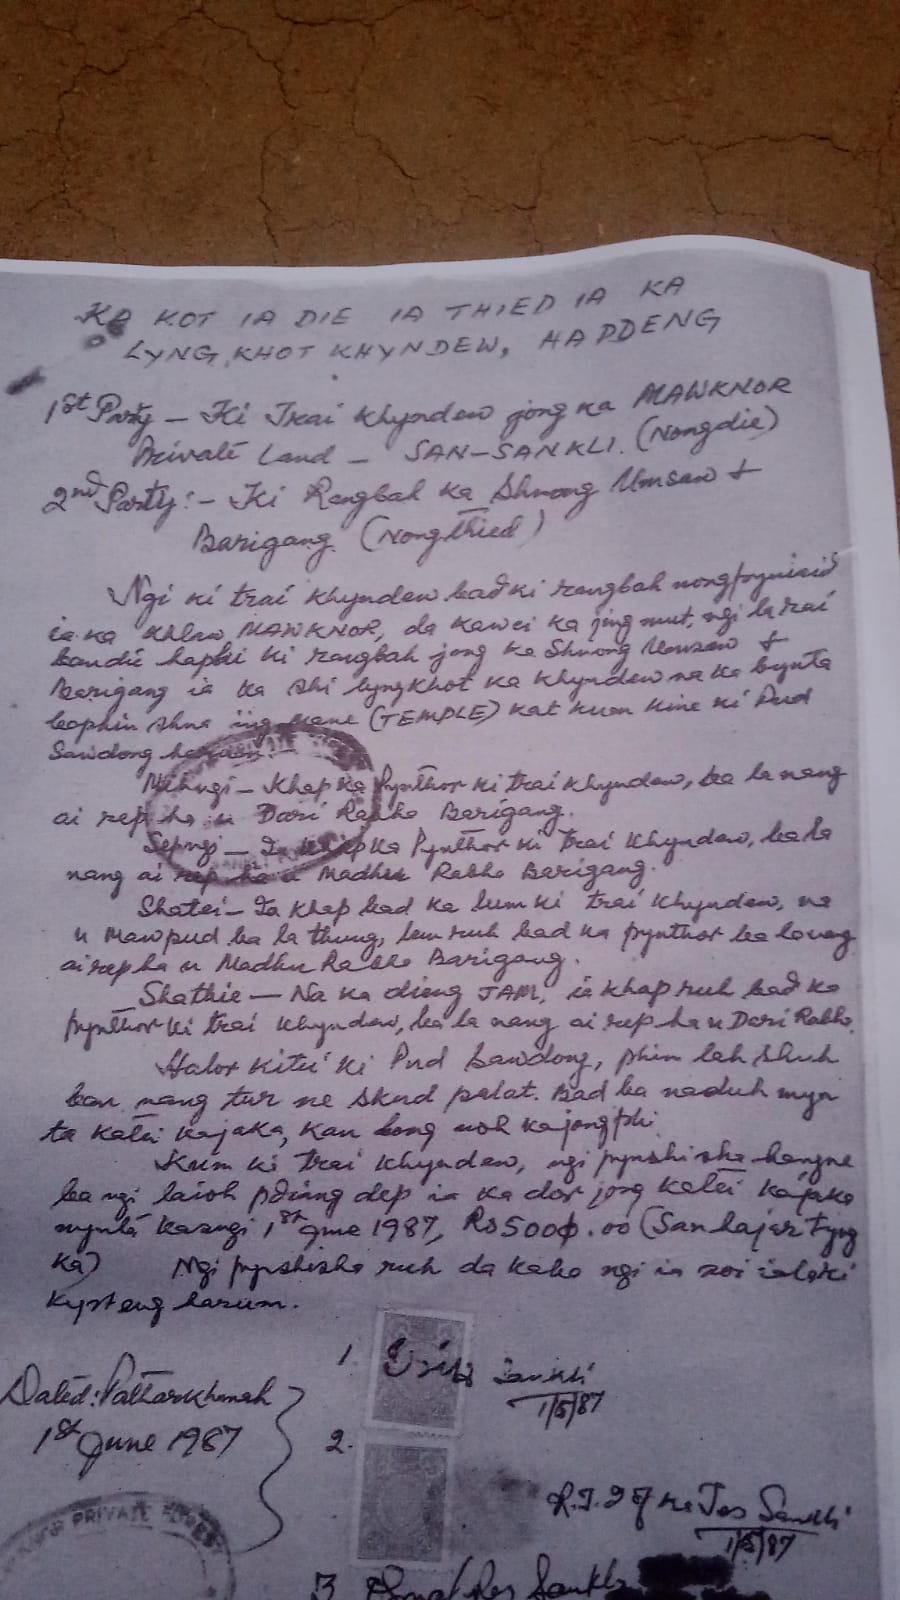 KA KOT IA DIE IA THIED IA KA
LYNG KHOT KHYNDEW, HAPDENG
1st Party – Ki Trai Khyndew jong ka MAWKNOR
Private Land – SAN-SANKLI. (Nongdie)
2nd Party:- Ki Rangbah Ka Shnong Umsaw &
Barigang (Nongthied)
Ngi ki trai khyndew bad ki rangbah nongpyniaid
ia ka khlaw MAWKNOR, da kawei ka jingmut, ngi la rai
ban die haphi ki rangbah jong ka Shnong Umsaw &
Barigang ia ka shi lyngkhot ka khyndew na ka bynta
ba phin shna iing mane (TEMPLE) kat kum kine ki Pud
Sawdong harum:-
Mihngi – Khap ka Pynthor ki trai khyndew, ba la nang
ai rep ha u Dari Rabha Barigang.
Sepngi – Ia khap ka Pynthor ki trai khyndew, ba la
nang ai rep ha u Madhu Rabha Barigang.
Shatei – Ia khap bad ka lum ki trai khyndew, na
u Mawpud ba la thung, lem ruh bad ka pynthor ba la nang
ai rep ha u Madhu Rabha Barigang.
Shathie – Na ka dieng JAM, ia khap ruh bad ka
pynthor ki trai khyndew, ba la nang ai rep ha u Dari Rabha.
Halor kitei ki Pud Sawdong, phim lah shuh
ban nang tur ne skud palat. Bad ba naduh myn
ta katei kajaka, kan long noh kajong phi.
Kum ki trai khyndew, ngi pynshisha hangne
ba ngi laioh pdiang dep ia ka dor jong katei kajaka
mynta ka sngi 1st June 1987, Rs 5000.00 (San hajar tyng
ka) Ngi pynshisha ruh da kaba ngi ia soi ialaki
kyrteng harum.
Dated: Patharkhmah
1st June 1987
1. Sankli
1/6/87
2.
R.T.I of Ka Jos Sankli
1/6/87
PRIVATE FOREST
3. Sankli